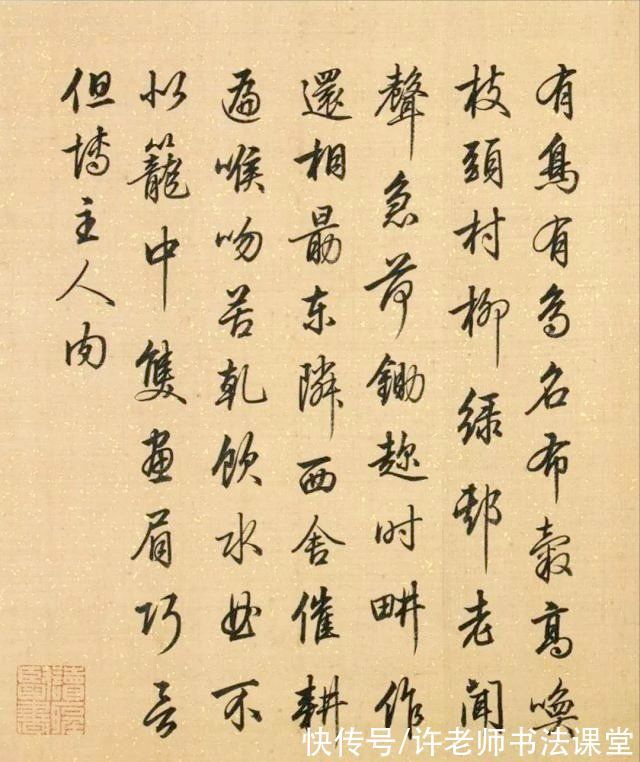 有鳥有鳥名布穀高喚
枝頭村柳綠邨老聞
聲急荷鋤趁時畊作
還相勗東隣西舍催耕
遍喉吻苦乾飲水曲不
似籠中隻畫眉巧言
但博主人肉
快传号/许老师书法课堂